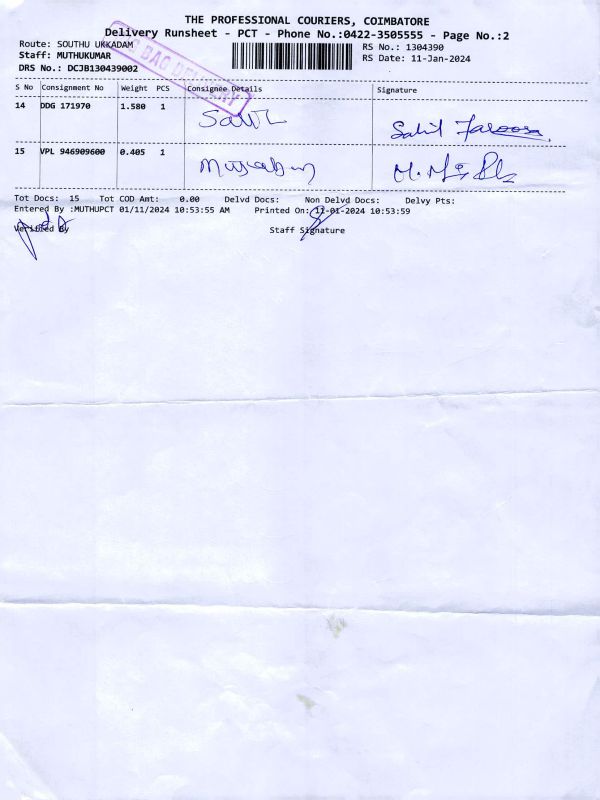 THE PROFESSIONAL COURIERS, COIMBATORE
Delivery Runsheet - PCT - Phone No.:0422-3505555 - Page No.:2
Route: SOUTHU UKKADAM
RS No.: 1304390
Staff: MUTHUKUMAR
RS Date: 11-Jan-2024
DRS No.: DCJB130439002
BAG DELIVERY
S No Consignment No Weight PCS Consignee Details Signature
14 DDG 171970 1.580 1
Sahil
15 VPL 946909600 0.405 1
Tot Docs: 15 Tot COD Amt: 0.00 Delvd Docs: Non Delvd Docs: Delvy Pts:
Entered By :MUTHUPCT 01/11/2024 10:53:55 AM Printed On: 11-01-2024 10:53:59
Verified By Staff Signature